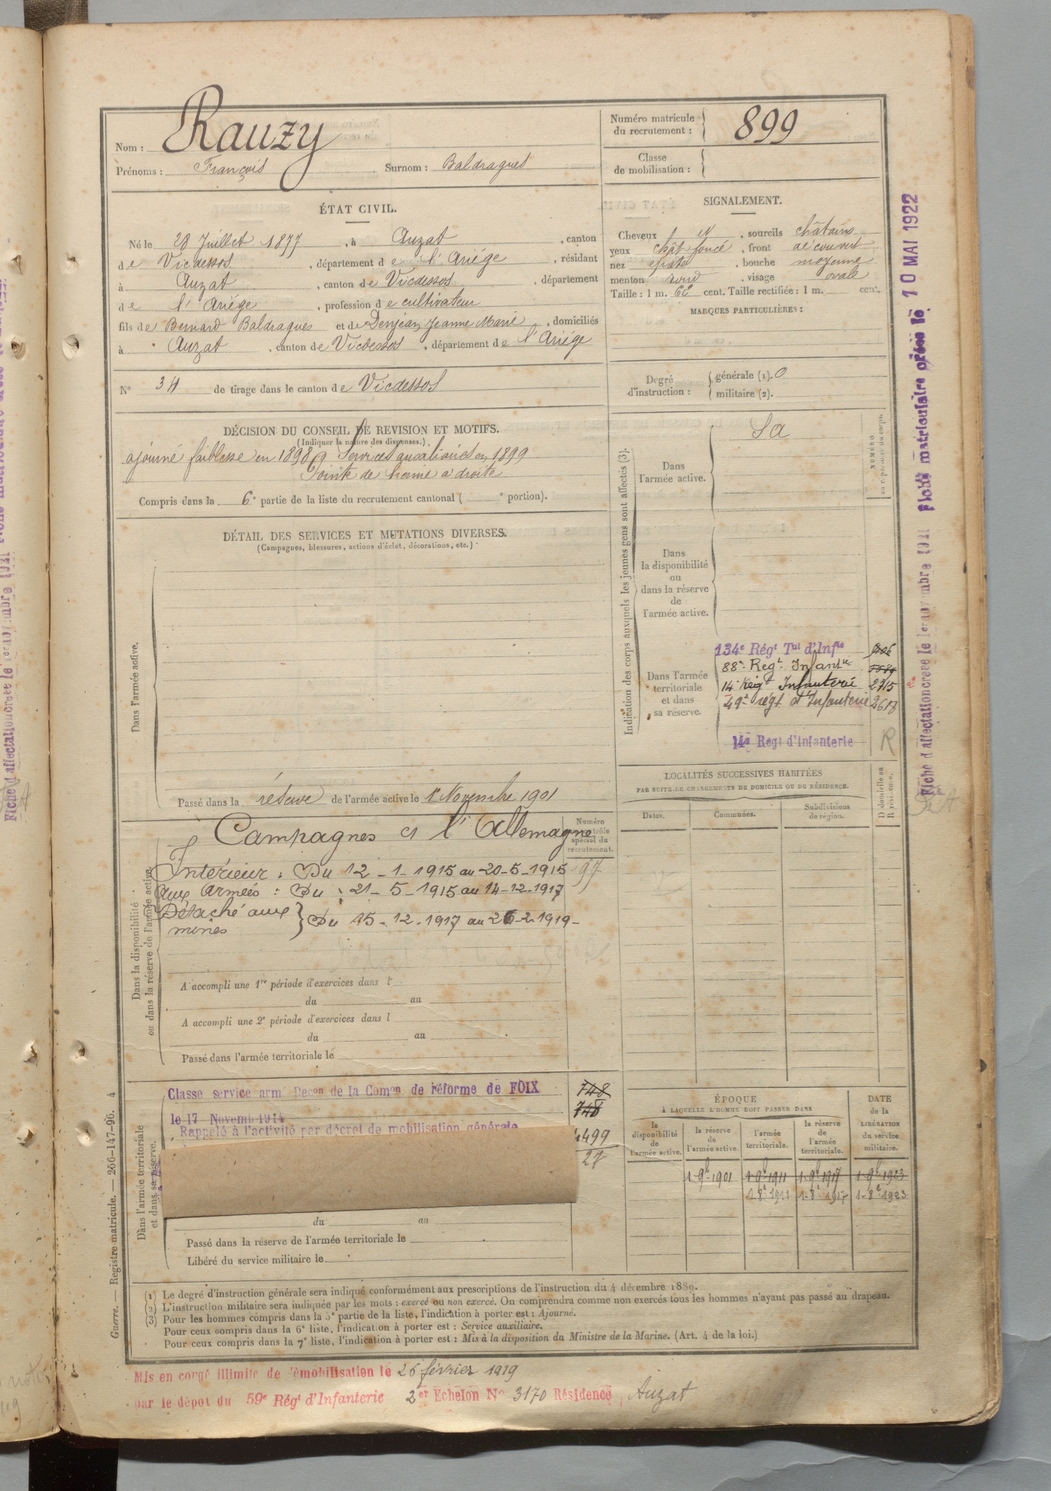 Nom : Rauzy
Prénoms : François Surnom : Baldragues
Numéro matricule du recrutement : 899
Classe de mobilisation :
ÉTAT CIVIL.
Né le 28 Juillet 1877, à Auzat, canton
de Vicdessos, département de l'Ariége, résidant
à Auzat, canton de Vicdessos, département
de l'Ariége, profession de cultivateur
fils de Bernard Baldragues et de Denjean Jeanne Marie, domiciliés
à Auzat, canton de Vicdessos, département de l'Ariége
N° 34 de tirage dans le canton de Vicdessos
SIGNALEMENT.
Cheveux et, sourcils châtains
yeux chât foncé, front découvert
nez épaté, bouche moyenne
menton rond, visage ovale
Taille : 1 m. 62 cent. Taille rectifiée : 1 m. cent.
MARQUES PARTICULIÈRES :
Degré d'instruction : générale (1). 0
militaire (2).
DÉCISION DU CONSEIL DE REVISION ET MOTIFS.
(Indiquer la nature des dispenses.)
ajourné faiblesse en 1898, Services auxiliaires en 1899
Pointe de hernie a droite
Compris dans la 6e partie de la liste du recrutement cantonal ( e portion).
DÉTAIL DES SERVICES ET MUTATIONS DIVERSES.
(Campagnes, blessures, actions d'éclat, décorations, etc.)
Dans l'armée active.
Passé dans la réserve de l'armée active le 1er Novembre 1901
Numéro du contrôle spécial du recrutement.
97
Dans la disponibilité
ou dans la réserve de l'armée active.
Campagnes cl l'Allemagne
Intérieur : Du 12-1-1915 au 20-5-1915
Aux armées : Du 21-5-1915 au 14-12-1917
Détaché aux mines } Du 15-12-1917 au 26-2-1919-
A accompli une 1re période d'exercices dans l
du au
A accompli une 2e période d'exercices dans l
du au
Passé dans l'armée territoriale le
Dans l'armée territoriale
et dans sa réserve.
Classe service armé Décon de la Comon de réforme de FOIX
le 17 Novemb 1914
Rappelé à l'activité par décret de mobilisation générale
748
748
499
27
du au
Passé dans la réserve de l'armée territoriale le
Libéré du service militaire le
Indication des corps auxquels les jeunes gens sont affectés (3).
Dans l'armée active.
Sa
NUMÉRO
Dans la disponibilité ou dans la réserve de l'armée active.
Dans l'armée territoriale et dans sa réserve.
134e Régt Tal d'Infie
88e Régt Infantie
14e Régt Infanterie 2715
49e régt d'Infanterie 2617
14e Régt d'Infanterie R
LOCALITÉS SUCCESSIVES HABITÉES
PAR SUITE DE CHANGEMENTS DE DOMICILE OU DE RÉSIDENCE.
Dates. Communes. Subdivisions de région. D domicile ou R résidence.
ÉPOQUE
À LAQUELLE L'HOMME DOIT PASSER DANS
DATE de la LIBÉRATION du service militaire.
la disponibilité de l'armée active. la réserve de l'armée active. l'armée territoriale. la réserve de l'armée territoriale.
1-9bre-1901 1-9bre-1911 1-9bre-1917 1-9bre-1923
1-8bre-1911 1-8bre-1917 1-8bre-1923
(1) Le degré d'instruction générale sera indiqué conformément aux prescriptions de l'instruction du 4 décembre 1889.
(2) L'instruction militaire sera indiquée par les mots : exercé ou non exercé. On comprendra comme non exercés tous les hommes n'ayant pas passé au drapeau.
(3) Pour les hommes compris dans la 5e partie de la liste, l'indication à porter est : Ajourné.
Pour ceux compris dans la 6e liste, l'indication à porter est : Service auxiliaire.
Pour ceux compris dans la 7e liste, l'indication à porter est : Mis à la disposition du Ministre de la Marine. (Art. 4 de la loi.)
Mis en congé illimité de démobilisation le 26 février 1919
par le dépot du 59e Régt d'Infanterie 2er Echelon N° 3170 Résidence Auzat
Guerre. — Registre matricule. — 266-147-96. 4
Fiche matriculaire créée le 10 MAI 1922
Fiche d'affectation créée le